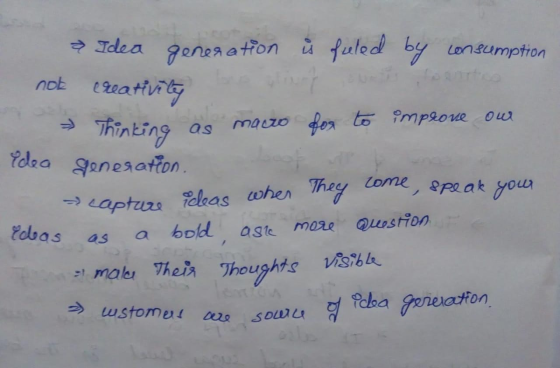 ⇒ Idea generation is fuled by consumption
not creativity
⇒ Thinking as macro for to improve our
idea generation.
⇒ capture ideas when They come, speak your
ideas as a bold, ask more question
⇒ make Their Thoughts visible
⇒ customers are source of idea generation.